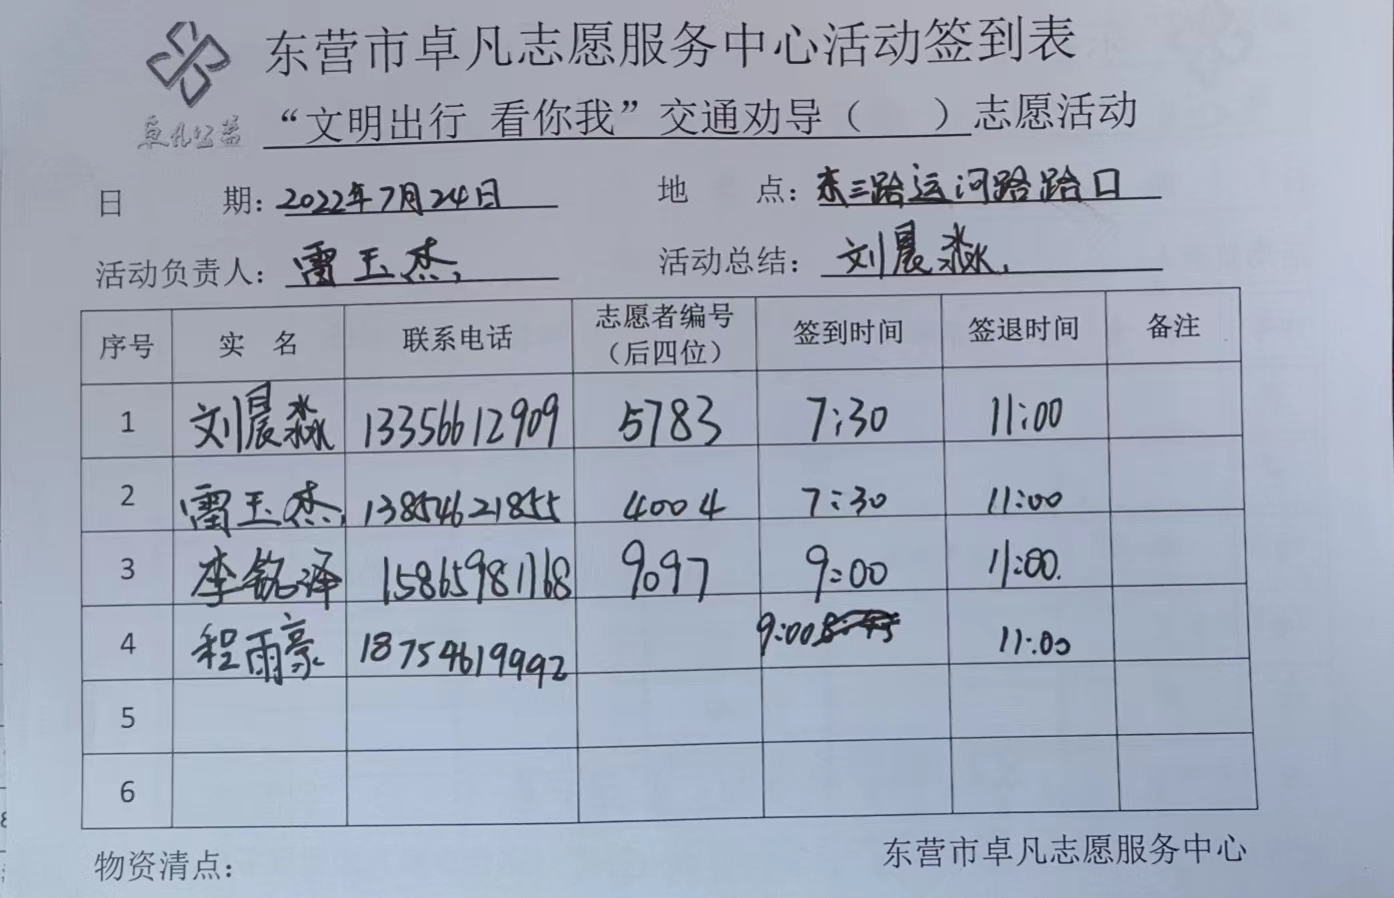 东营市卓凡志愿服务中心活动签到表
卓凡公益
“文明出行 看你我”交通劝导（ ）志愿活动
日 期：2022年7月24日 地 点：东三路运河路路口
活动负责人：雷玉杰 活动总结：刘晨淼
序号 实 名 联系电话 志愿者编号（后四位） 签到时间 签退时间 备注
1 刘晨淼 13356612909 5783 7:30 11:00
2 雷玉杰 13854621855 4004 7:30 11:00
3 李铭泽 15865981168 9097 9:00 11:00
4 程雨豪 18754619992 9:00 11:00
5
6
物资清点： 东营市卓凡志愿服务中心